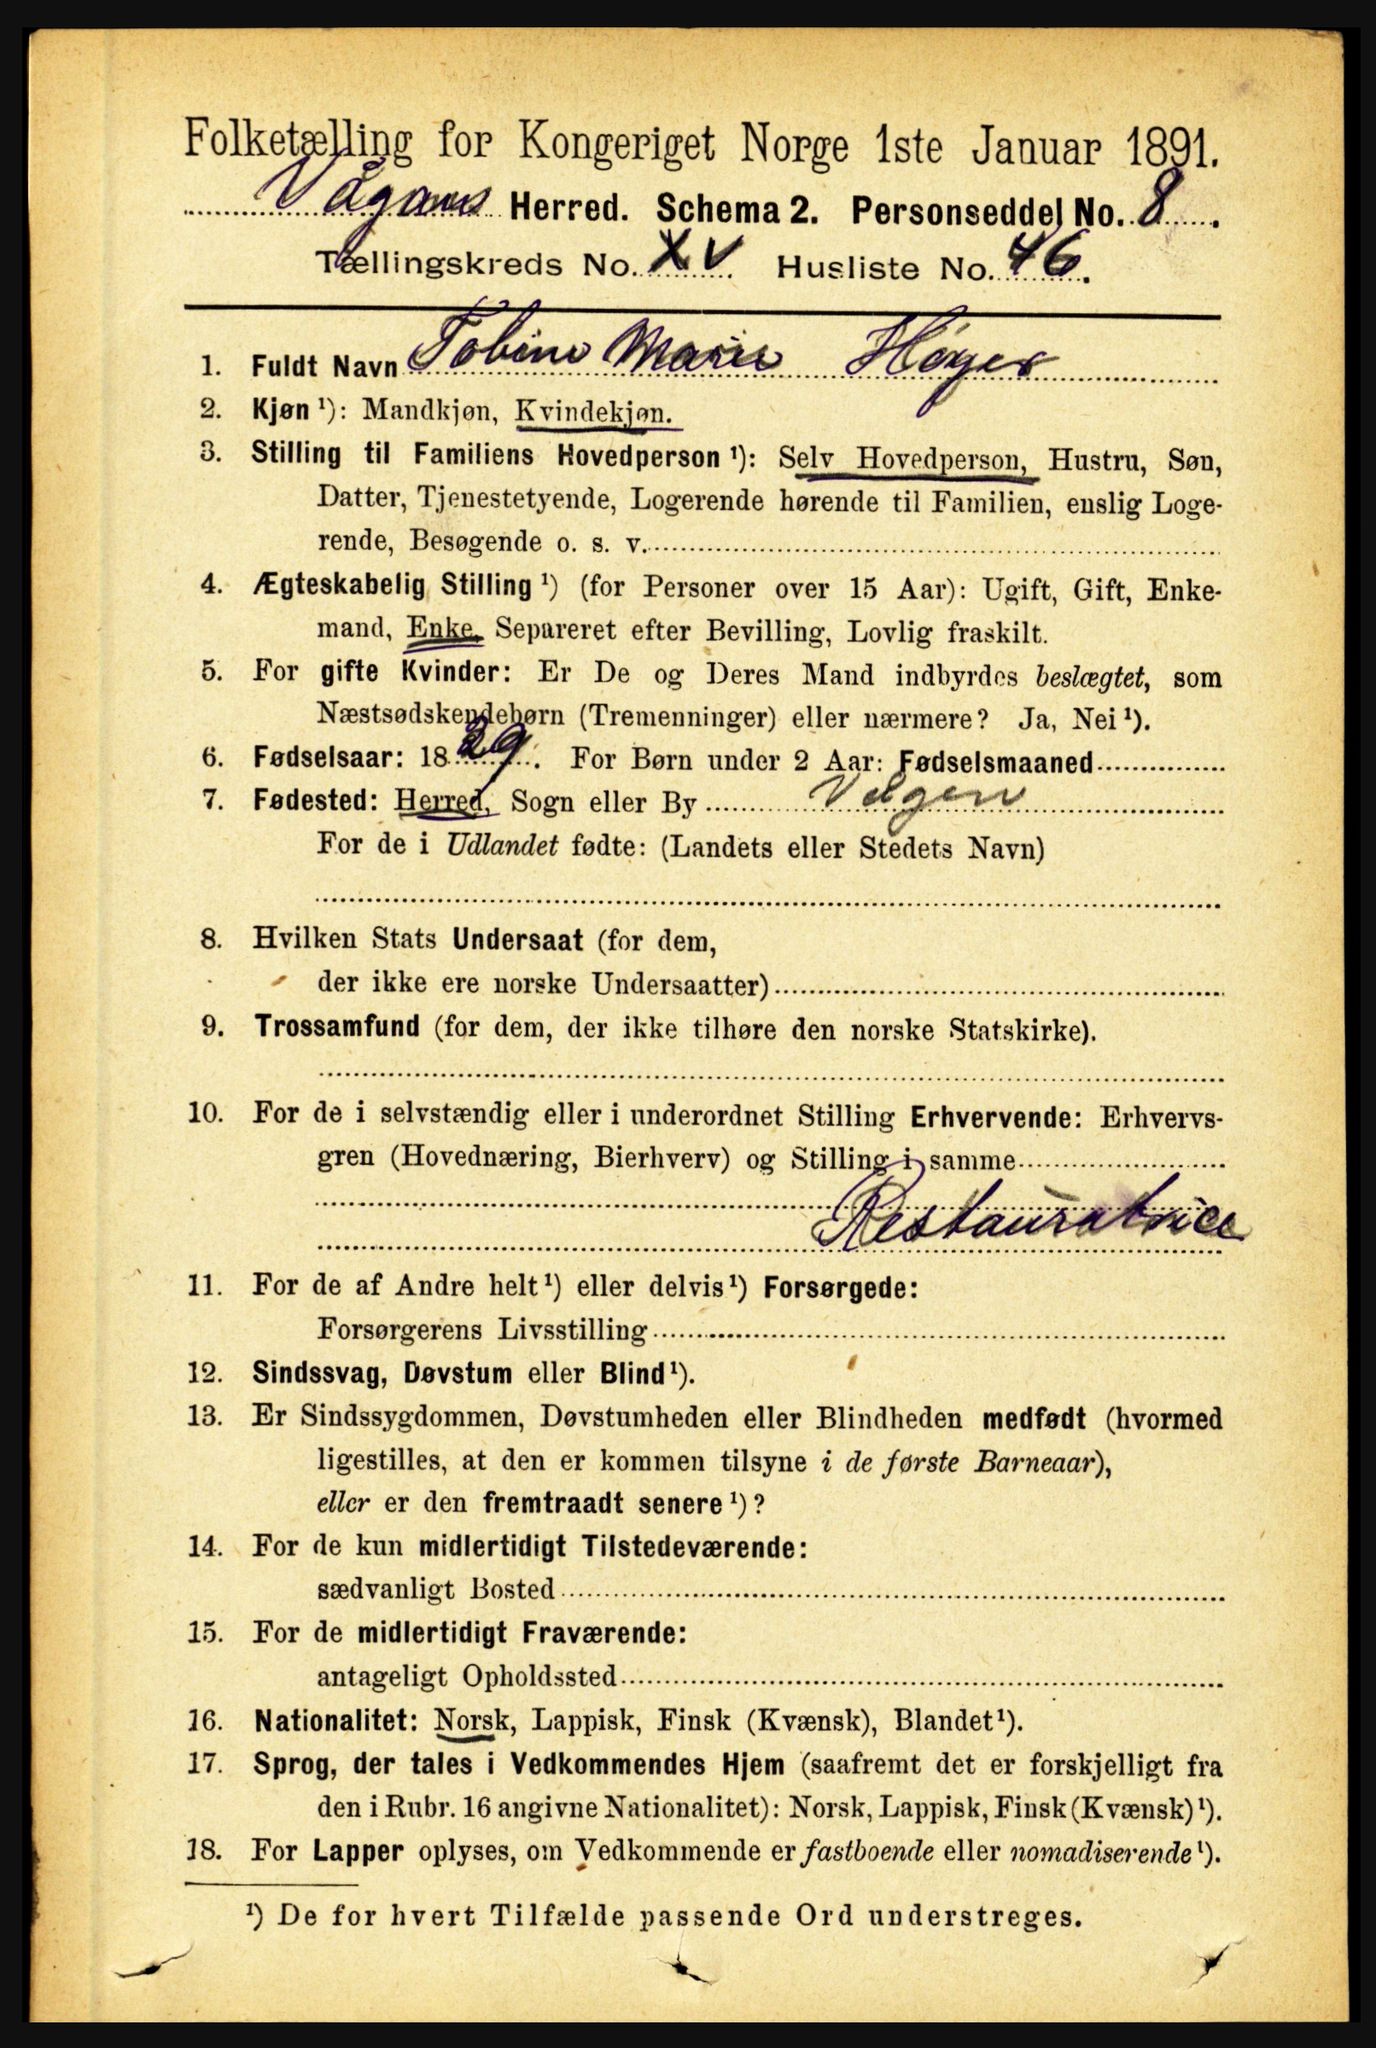 Folketælling for Kongeriget Norge 1ste Januar 1891.
Vågans Herred. Schema 2. Personseddel No. 8.
Tællingskreds No. XV Husliste No. 46.
1. Fuldt Navn Tobine Marie Høyer
2. Kjøn ¹): Mandkjøn, Kvindekjøn.
3. Stilling til Familiens Hovedperson ¹): Selv Hovedperson, Hustru, Søn,
Datter, Tjenestetyende, Logerende hørende til Familien, enslig Loge-
rende, Besøgende o. s. v.
4. Ægteskabelig Stilling ¹) (for Personer over 15 Aar): Ugift, Gift, Enke-
mand, Enke, Separeret efter Bevilling, Lovlig fraskilt.
5. For gifte Kvinder: Er De og Deres Mand indbyrdes beslægtet, som
Næstsødskendebørn (Tremenninger) eller nærmere? Ja, Nei ¹).
6. Fødselsaar: 1839. For Børn under 2 Aar: Fødselsmaaned
7. Fødested: Herred, Sogn eller By Velgen
For de i Udlandet fødte: (Landets eller Stedets Navn)
8. Hvilken Stats Undersaat (for dem,
der ikke ere norske Undersaatter)
9. Trossamfund (for dem, der ikke tilhøre den norske Statskirke).
10. For de i selvstændig eller i underordnet Stilling Erhvervende: Erhvervs-
gren (Hovednæring, Bierhverv) og Stilling i samme
Restauratrice
11. For de af Andre helt ¹) eller delvis ¹) Forsørgede:
Forsørgerens Livsstilling
12. Sindssvag, Døvstum eller Blind ¹).
13. Er Sindssygdommen, Døvstumheden eller Blindheden medfødt (hvormed
ligestilles, at den er kommen tilsyne i de første Barneaar),
eller er den fremtraadt senere ¹)?
14. For de kun midlertidigt Tilstedeværende:
sædvanligt Bosted
15. For de midlertidigt Fraværende:
antageligt Opholdssted
16. Nationalitet: Norsk, Lappisk, Finsk (Kvænsk), Blandet ¹).
17. Sprog, der tales i Vedkommendes Hjem (saafremt det er forskjelligt fra
den i Rubr. 16 angivne Nationalitet): Norsk, Lappisk, Finsk (Kvænsk) ¹).
18. For Lapper oplyses, om Vedkommende er fastboende eller nomadiserende ¹).
¹) De for hvert Tilfælde passende Ord understreges.